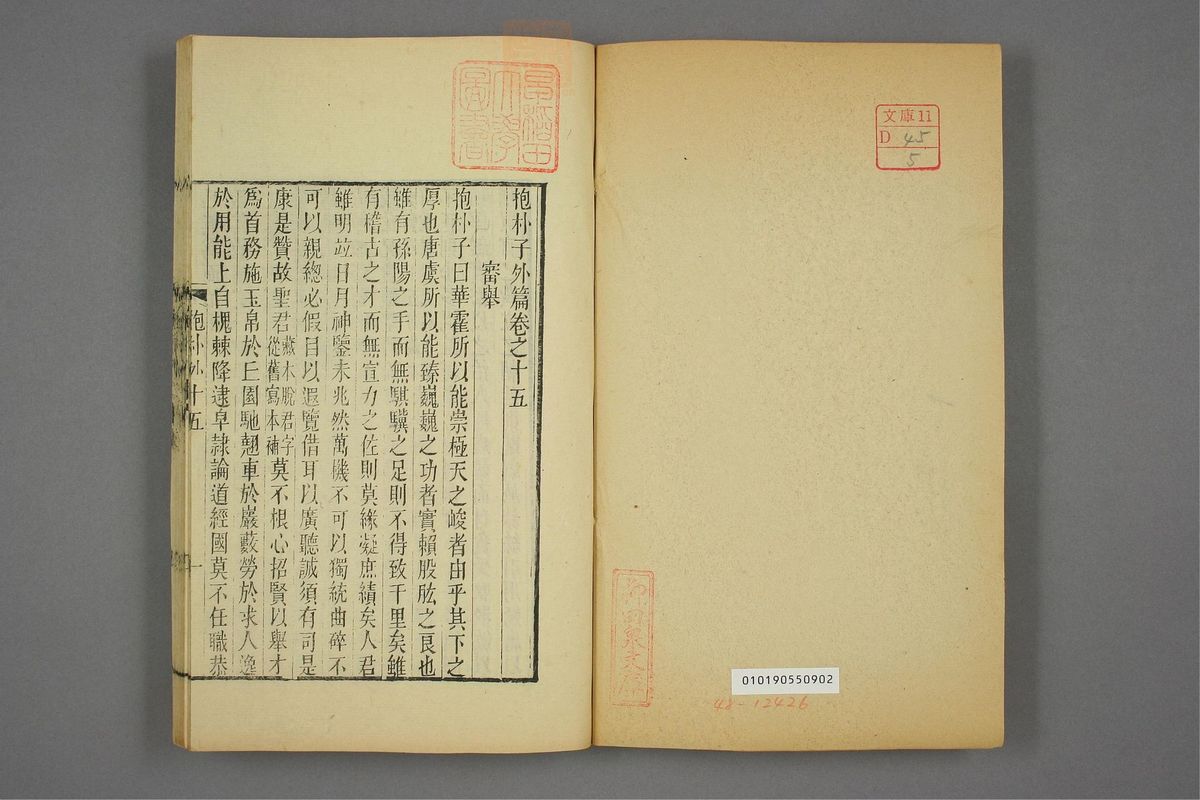 文庫11
D 45
5
010190550902
48-12426
早稲田
大學
圖書
抱朴子外篇卷之十五
審舉
抱朴子曰華霍所以能崇極天之峻者由乎其下之
厚也唐虞所以能臻巍巍之功者實賴股肱之良也
雖有孫陽之手而無騏驥之足則不得致千里矣雖
有稽古之才而無宣力之佐則莫緣凝庶績矣人君
雖明竝日月神鑒未兆然萬機不可以獨統曲碎不
可以親總必假目以遐覽借耳以廣聽誠須有司是
康是贊故聖君藏本脫君字從舊寫本補莫不根心招賢以舉才
爲首務施玉帛於丘園馳翹車於巖藪勞於求人逸
於用能上自槐棘降逮皁隸論道經國莫不任職恭
抱朴外十五
一